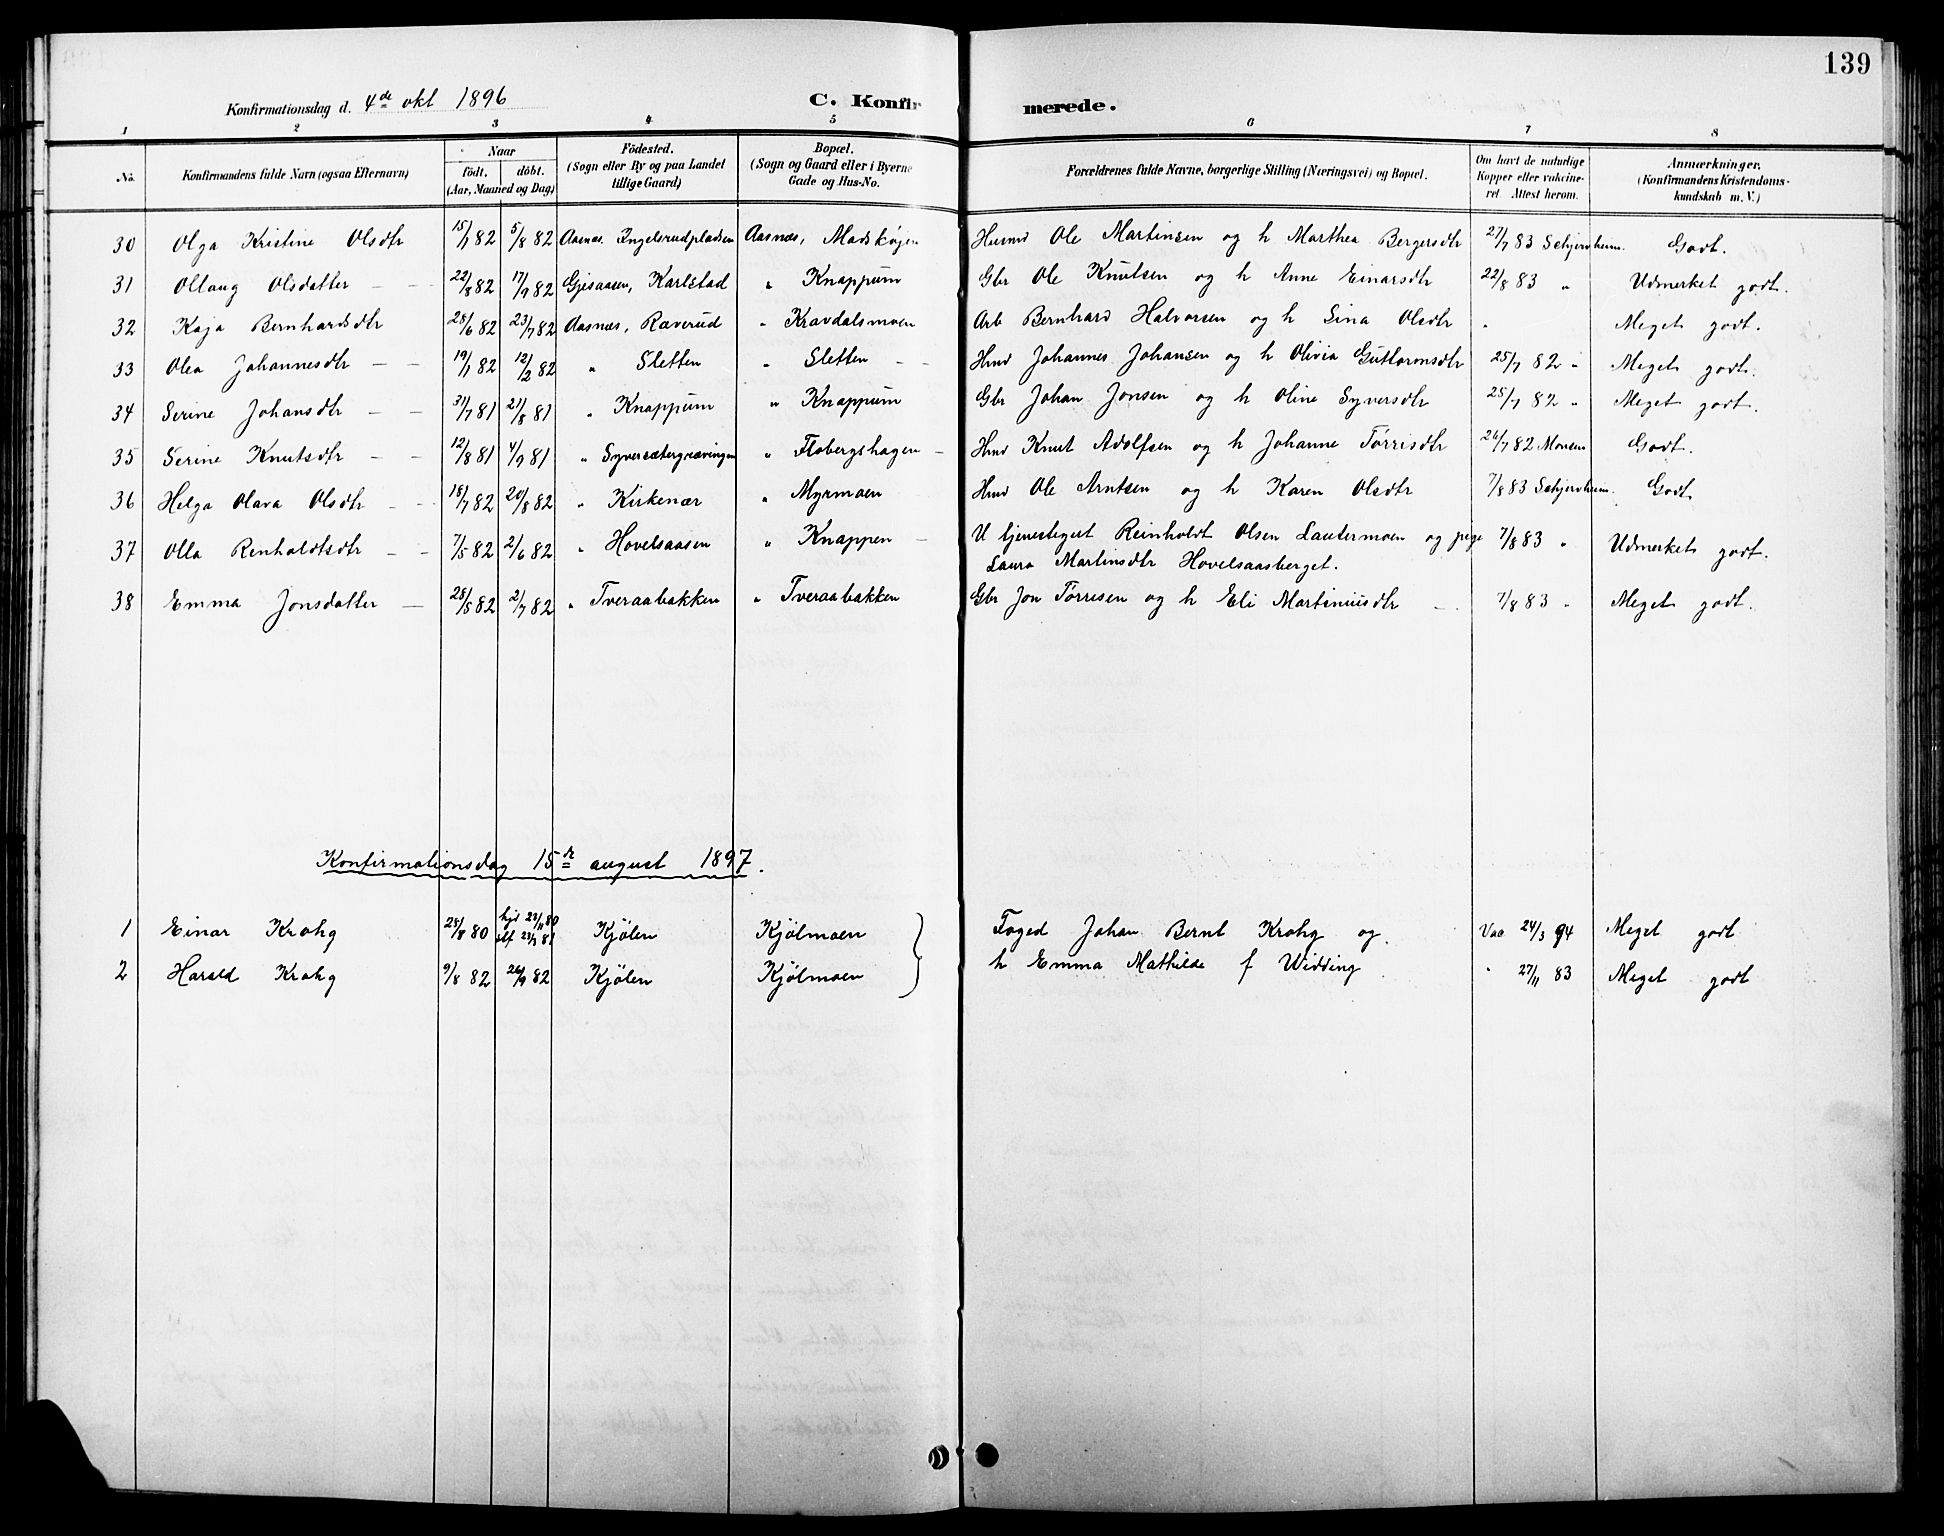 139
Konfirmationsdag d. 4de okt 1896 C. Konfirmerede.
1 2 3 4 5 6 7 8
No. Konfirmandens fulde Navn (ogsaa Efternavn) Naar födt. döbt. (Aar, Maaned og Dag) Födested. (Sogn eller By og paa Landet tillige Gaard) Bopæl. (Sogn og Gaard eller i Byerne Gade og Hus-No. Forældrenes fulde Navne, borgerlige Stilling (Næringsvei) og Bopæl. Om havt de naturlige Kopper eller vakcineret. Attest herom. Anmærkninger. (Konfirmandens Kristendomskundskab m. V.)
30 Olga Kristine Olsdtr 15/1 82 5/8 82 Aasnæs. Ingelsrudpladsen Aasnæs, Madskøjen Husmd Ole Martinsen og h Marthea Bergersdtr 27/7 83 Schjervheim. Godt.
31 Ollaug Olsdatter 22/8 82 17/9 82 Gjesaasen, Karlstad " Knappum Gbr Ole Knutsen og h Anne Einarsdtr 22/8 83 " Udmerket godt.
32 Kaja Bernhardsdtr 28/6 82 23/7 82 Aasnæs, Raverud " Kravdalsmoen Arb Bernhard Halvorsen og h Sina Olsdtr " Meget godt.
33 Olea Johannesdtr 19/1 82 12/2 82 " Sletten " Sletten Hmd Johannes Johansen og h Olivia Guttormsdtr 25/7 82 " Meget godt.
34 Serine Johansdtr 31/7 81 21/8 81 " Knappum " Knappum Gbr Johan Jonsen og h Oline Syversdtr 25/7 82 " Meget godt.
35 Serine Knutsdtr 12/8 81 4/9 81 " Syversætergrævingen " Flobergshagen Hmd Knut Adolfsen og h Johanne Tørrisdtr 26/7 82 Monsen Godt.
36 Helga Olava Olsdtr 18/7 82 20/8 82 " Kirkenær " Myrmoen Hmd Ole Arntsen og h Karen Olsdtr 7/8 83 Schjervheim. Godt
37 Olla Renholdtsdtr 7/5 82 2/6 82 " Hovelsaasen " Knappen U tjenestegut Reinholdt Olsen Lautermoen og pige 7/8 83 " Udmerket godt.
Laura Martinsdtr Hovelsaasberget.
38 Emma Jonsdatter 28/5 82 2/7 82 " Tveraabakken " Tveraabakken Gbr Jon Tørrisen og h Eli Martiniusdtr 7/8 83 " Meget godt.
Konfirmationsdag 15de august 1897.
1 Einar Krohg 28/8 80 hjd 23/11 80 Kjölen Kjølmoen Foged Johan Bernt Krohg og Vac 24/3 94 Meget godt
2 Harald Krohg 9/8 82 26/9 82 Kjølen Kjølmoen h Emma Mathilde f Widding " 27/11 83 Meget godt